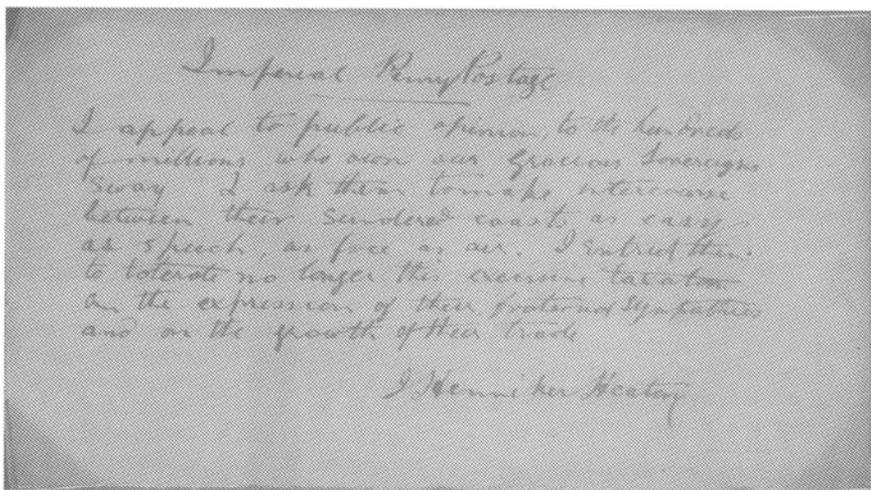 Imperial Penny Postage
I appeal to public opinion, to the hundreds
of millions who own our Gracious Sovereigns
Sway I ask them to make intercourse
between their sundered coasts as easy
as speech, as free as air. I entreat them
to tolerate no longer this excessive taxation
on the expression of their fraternal Sympathies
and on the growth of their trade
J Henniker Heaton